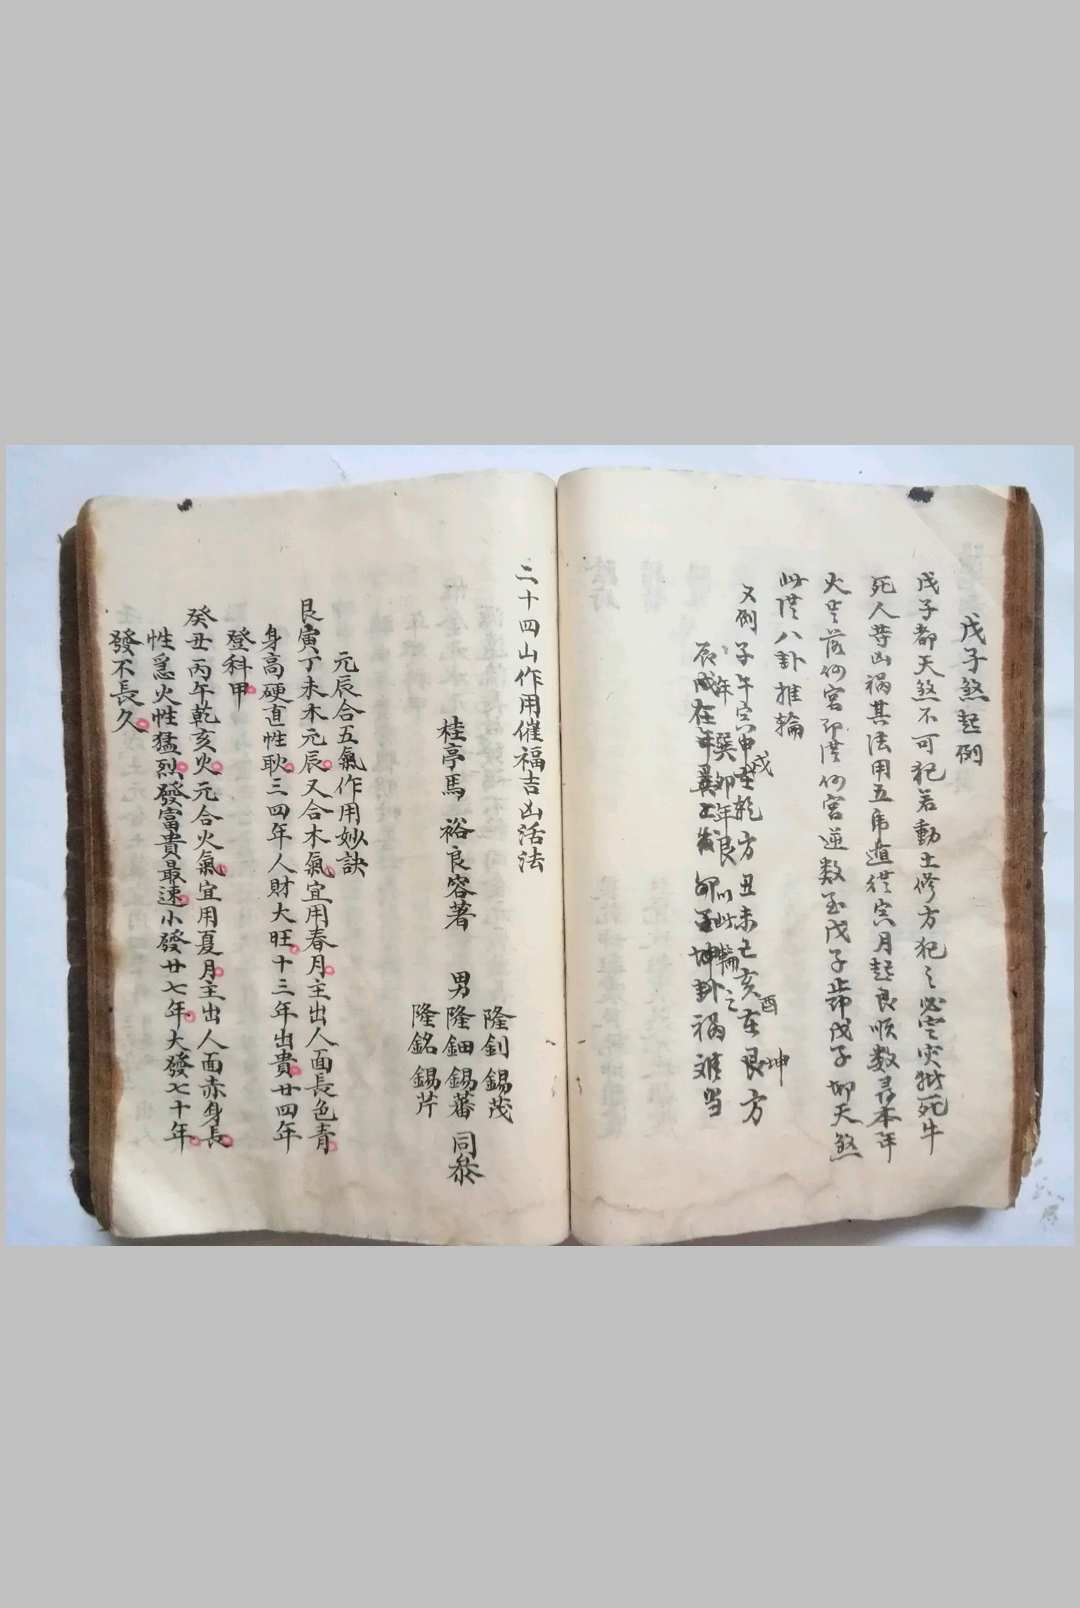 戊子煞起例
戊子都天煞不可犯若動土修方犯之必定灾祸死牛
死人等凶祸其法用五虎遁從寅月起艮順数寻本年
火星落何宮即從何宮逆数至戊子is戊子却天煞
此從八卦推輪
又例子午寅申戌在乾方丑未巳亥酉在艮坤方
辰戌在年巽卯年艮以此輪之坤卦祸难当
二十四山作用催福吉凶活法
桂亭馬 裕良容著
男
隆釗錫茂
隆鈿錫蕃 同叅
隆銘錫芹
元辰合五氣作用妙訣
艮寅丁未木元辰又合木氣宜用春月主出人面長色青
身高硬直性耿三四年人財大旺十三年出貴廿四年
登科甲
癸丑丙午乾亥火元合火氣宜用夏月主出人面赤身長
性急火性猛烈發富貴最速小發廿七年大發七十年
發不長久